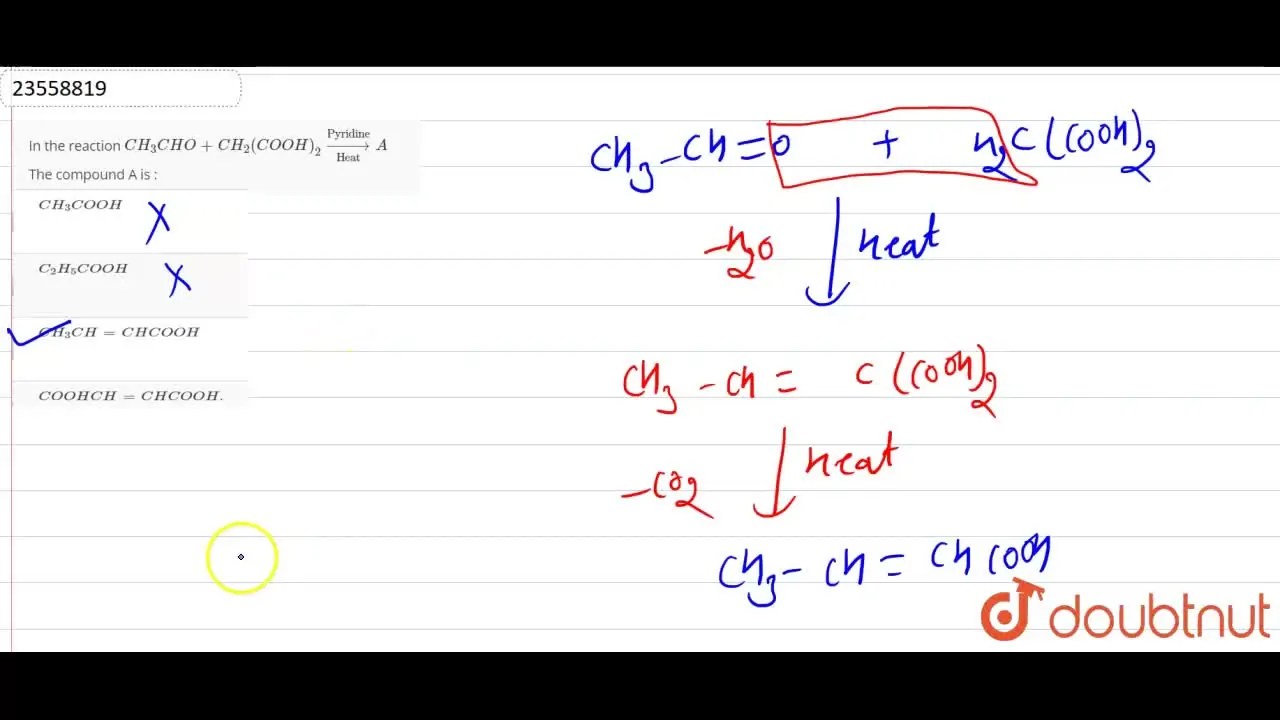 23558819
In the reaction CH₃CHO + CH₂(COOH)₂ —Pyridine/Heat→ A
The compound A is :
CH₃COOH X
C₂H₅COOH X
CH₃CH = CHCOOH
COOHCH = CHCOOH.
CH₃-CH=O + H₂C(COOH)₂
-H₂O heat
CH₃-CH= C(COOH)₂
-CO₂ heat
CH₃-CH=CHCOOH
doubtnut